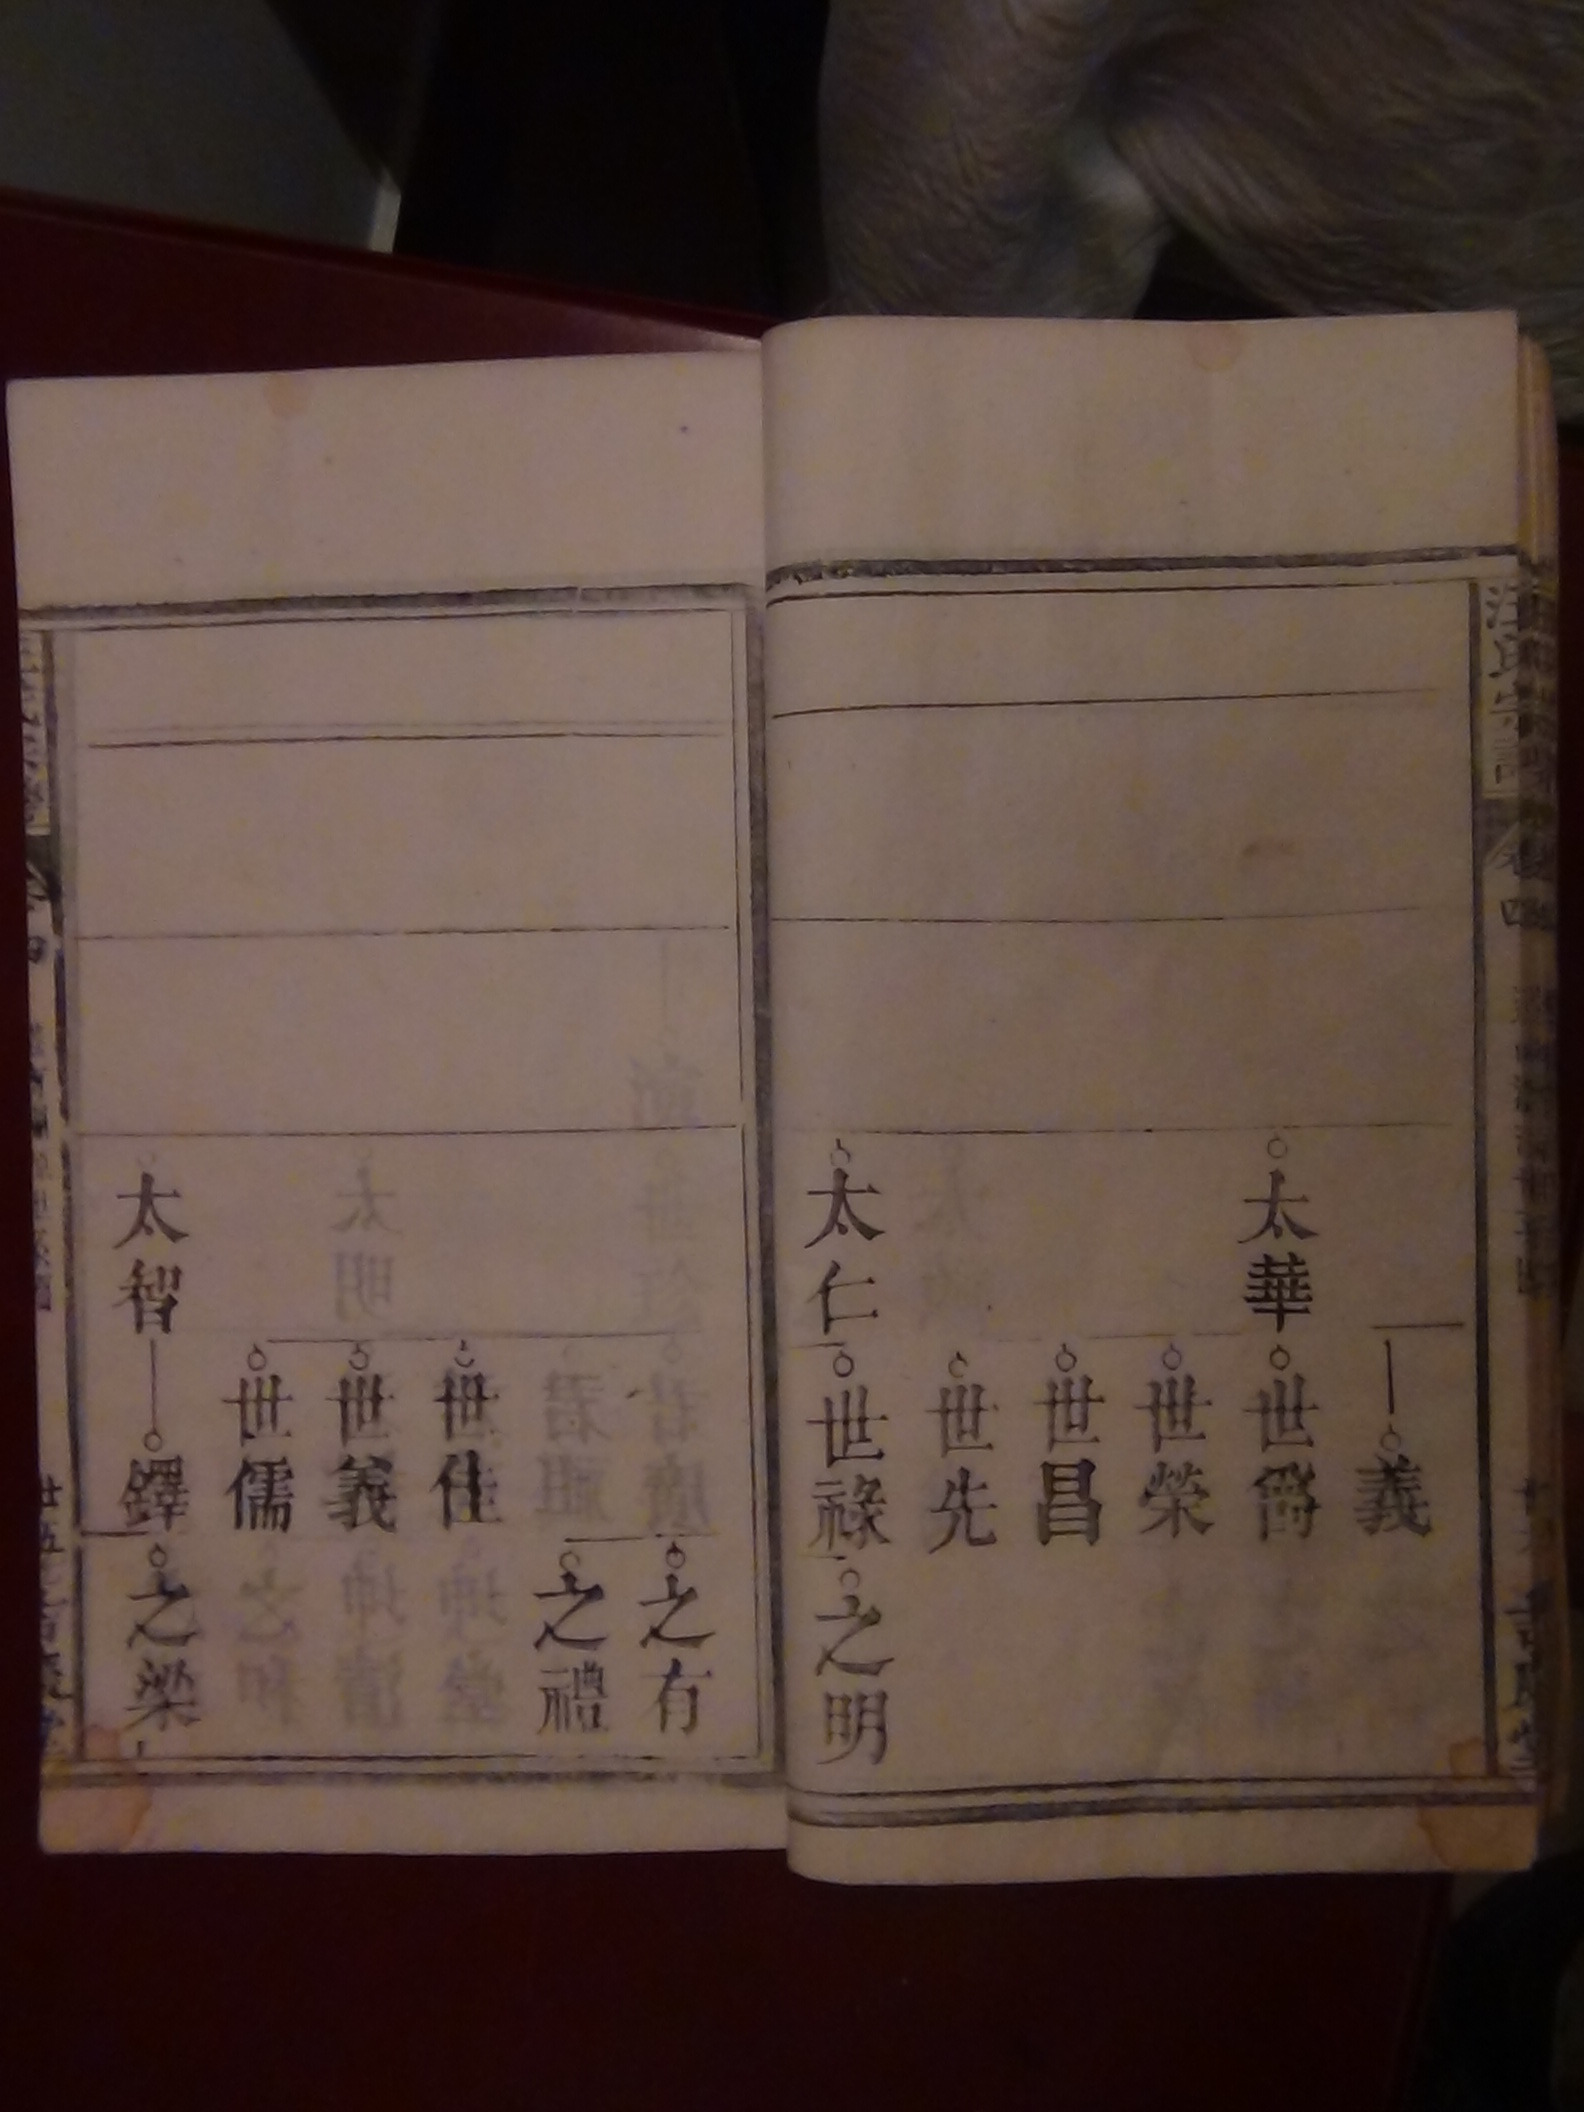 義
太華
世爵
世榮
世昌
世先
太仁
世祿
之明
之有
之禮
世佳
世義
世儒
太智
鐸
之梁